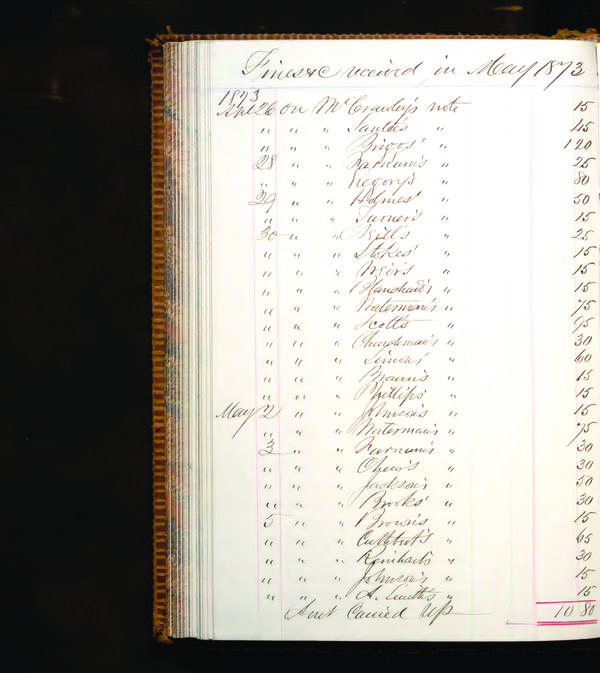 Fines &c received in May 1873
1873
Apl 26 on McCrawley's note 15
" " " Sautee's " 45
" " " Briggs' " 1 20
28 " " Farnum's " 25
" " " Gregory's " 80
29 " " Holmes' " 50
" " " Turner's " 15
30 " " Bill's " 25
" " " Stokes' " 15
" " " Weir's " 15
" " " Blanchard's " 15
" " " Waterman's " 75
" " " Scott's " 95
" " " Churchman's " 30
" " " Simons' " 60
" " " Braun's " 15
" " " Phillips' " 15
May 2 " " Johnson's " 15
" " " Waterman's " 75
3 " " Farnum's " 30
" " " Chew's " 30
" " " Jackson's " 50
" " " Brooks' " 30
5 " " Brown's " 15
" " " Cuthbert's " 65
" " " Reinhart's " 30
" " " Johnson's " 15
" " " A. Smith's " 15
Amt Carried Up 10 80